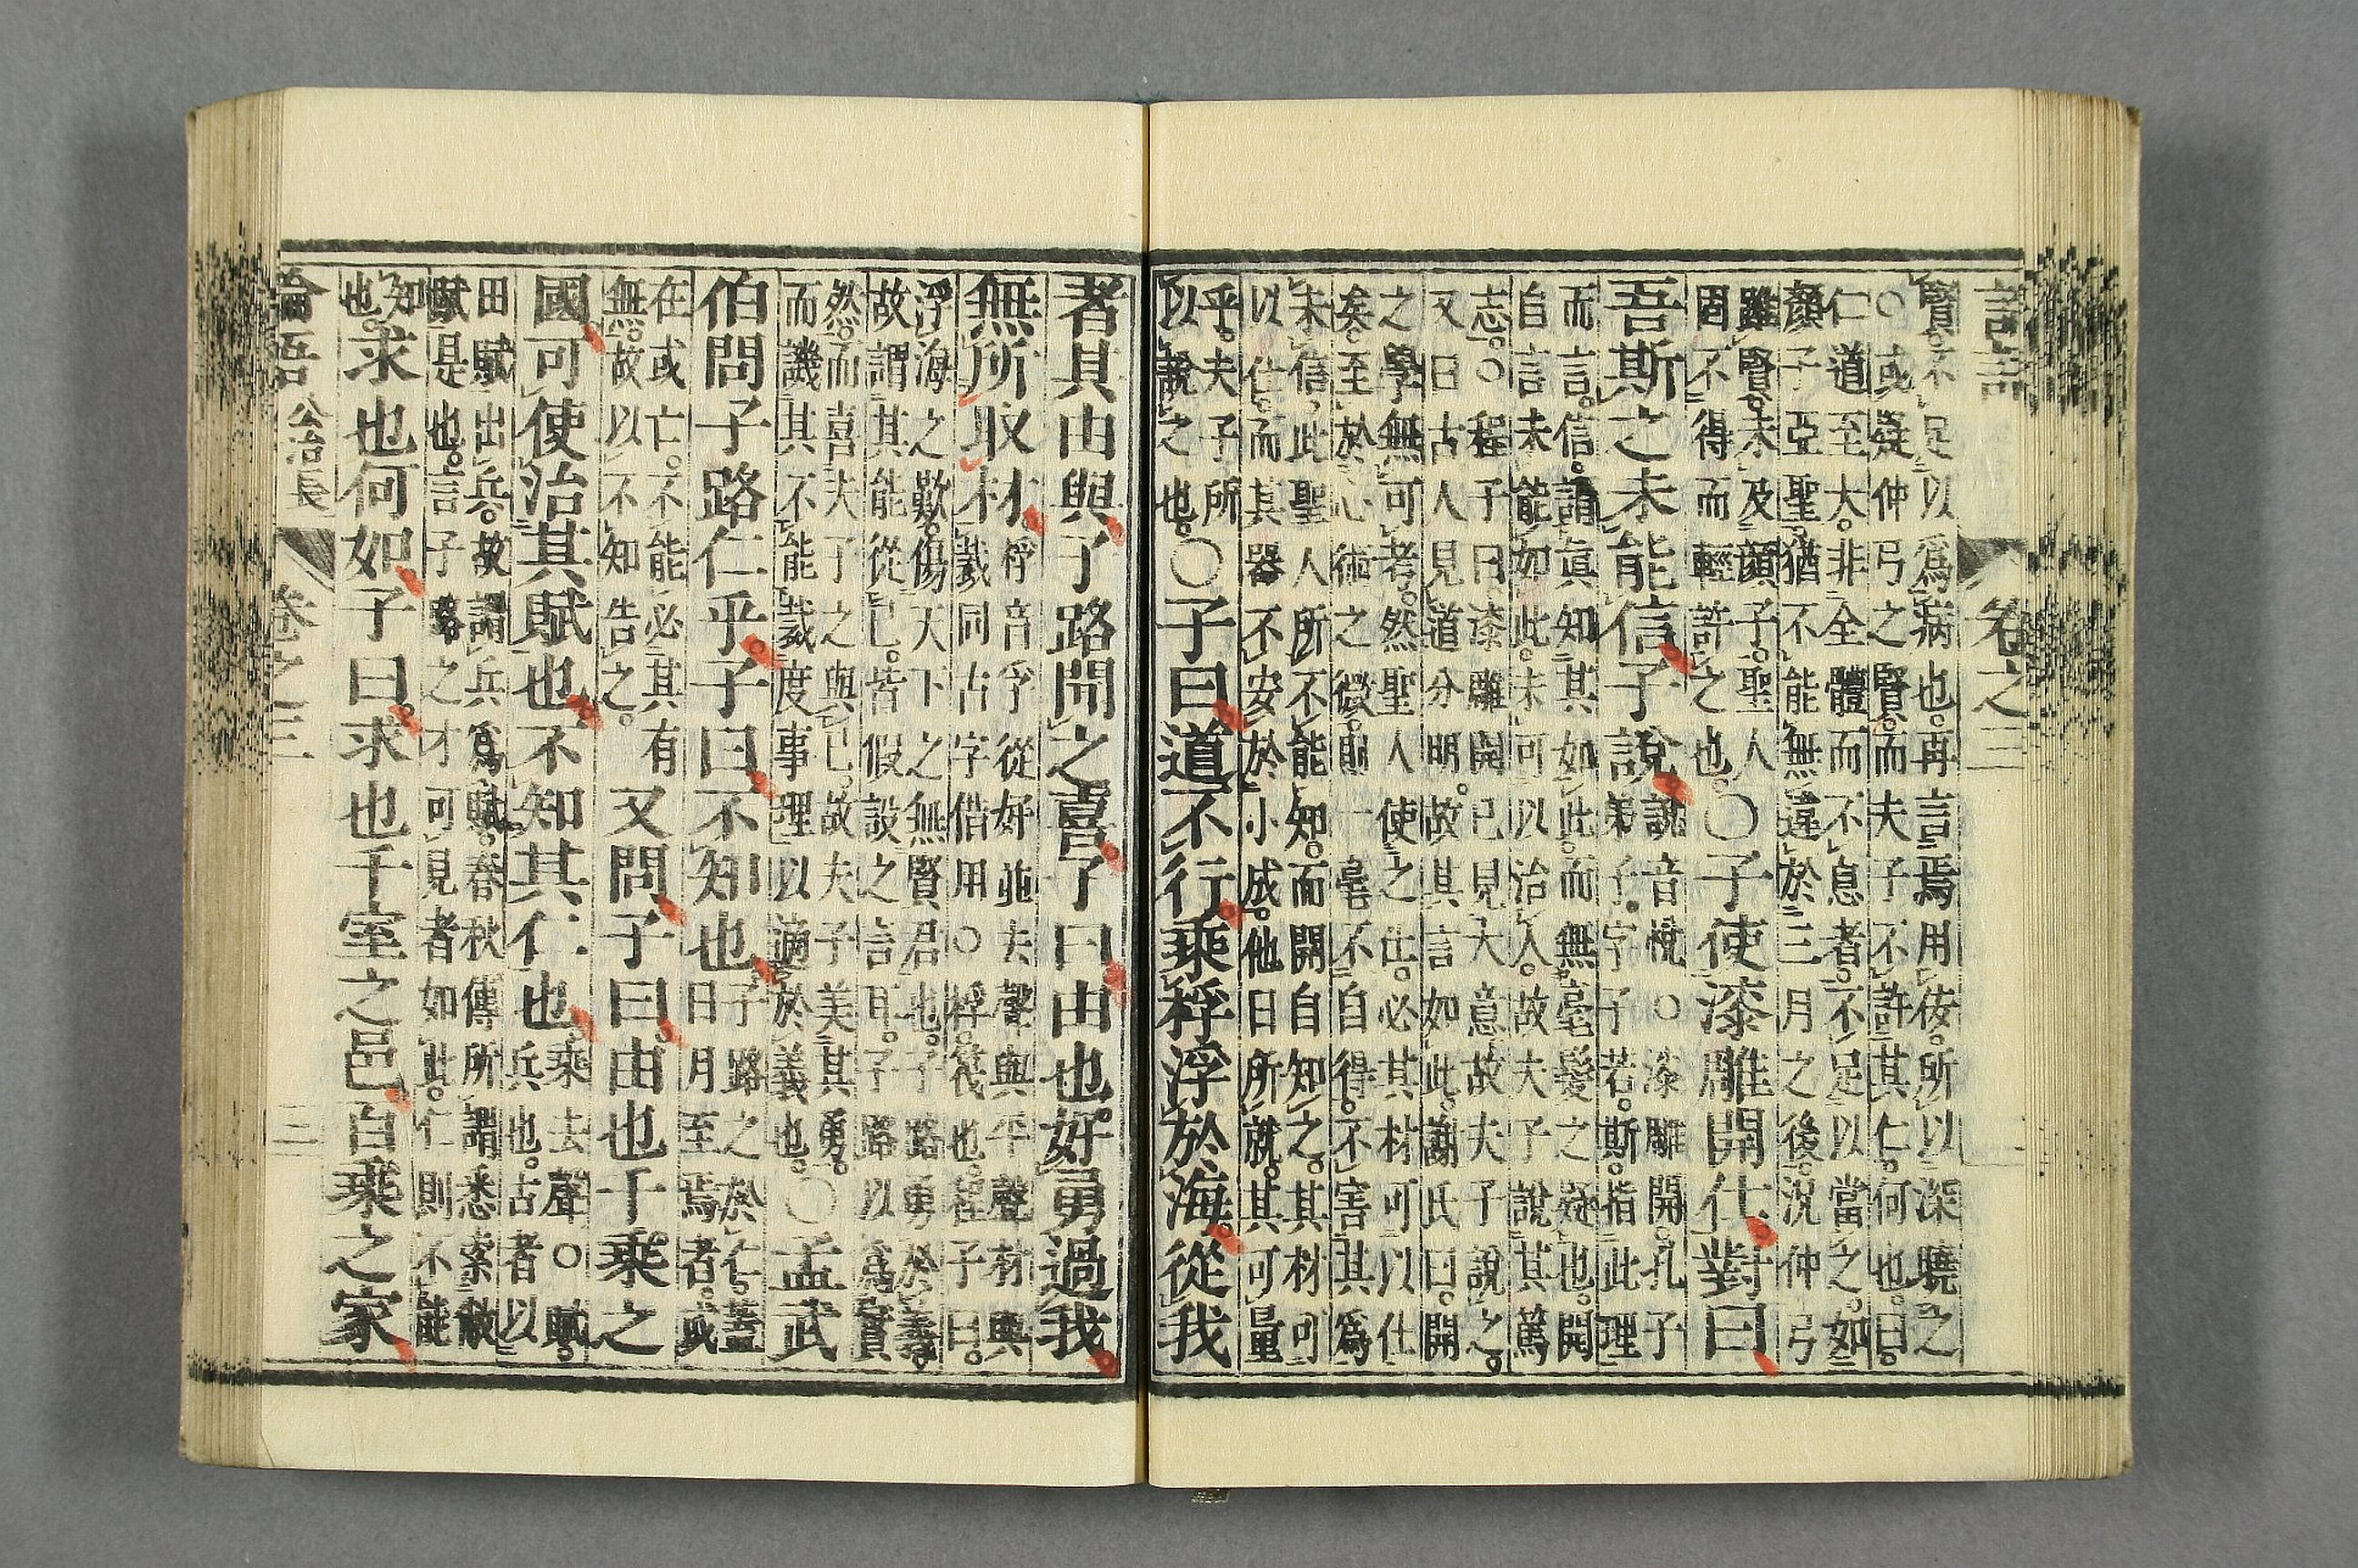 卷之三
賢。不足以爲病也。再言焉用佞。所以深曉之
○或疑仲弓之賢。而夫子不許其仁。何也。曰。
仁道至大。非全體而不息者。不足以當之。如
顏子亞聖。猶不能無違於三月之後。況仲弓
雖賢。未及顏子。聖人
固不得而輕許之也。
○子使漆雕開仕對曰
吾斯之未能信子說
說音悅○漆雕開。孔子
弟子。字子若。斯。指此理
而言。信。謂眞知其如此。而無毫髮之疑也。開
自言未能如此。未可以治人。故夫子說其篤
志。○程子曰漆雕開已見大意故夫子說之。
又曰古人見道分明。故其言如此。謝氏曰。開
之學無可考。然聖人使之仕。必其材可以仕
矣。至於心術之微。則一毫不自得。不害其爲
未信。此聖人所不能知。而開自知之。其材可
以仕。而其器不安於小成。他日所就。其可量
乎。夫子所
以說之也。
○子曰道不行乘桴浮於海從我
者其由與子路聞之喜子曰由也好勇過我
無所取材
桴音孚從好並去聲與平聲材與
裁同古字借用○桴。筏也。程子曰。
浮海之歎。傷天下之無賢君也。子路勇於義。
故謂其能從己。皆假設之言耳。子路以爲實
然。而喜夫子之與己。故夫子美其勇。
而譏其不能裁度事理以適於義也。
○孟武
伯問子路仁乎。子曰不知也
子路之於仁。蓋
日月至焉者。或
在或亡。不能必其有
無。故以不知告之。
又問子曰由也千乘之
國可使治其賦也不知其仁也
乘去聲○賦。
兵也。古者以
田賦出兵。故謂兵爲賦。春秋傳所謂悉索敝
賦是也。言子路之才可見者如此。仁則不能
知
也。
求也何如子曰求也千室之邑百乘之家
論語 公冶長 卷之三 三